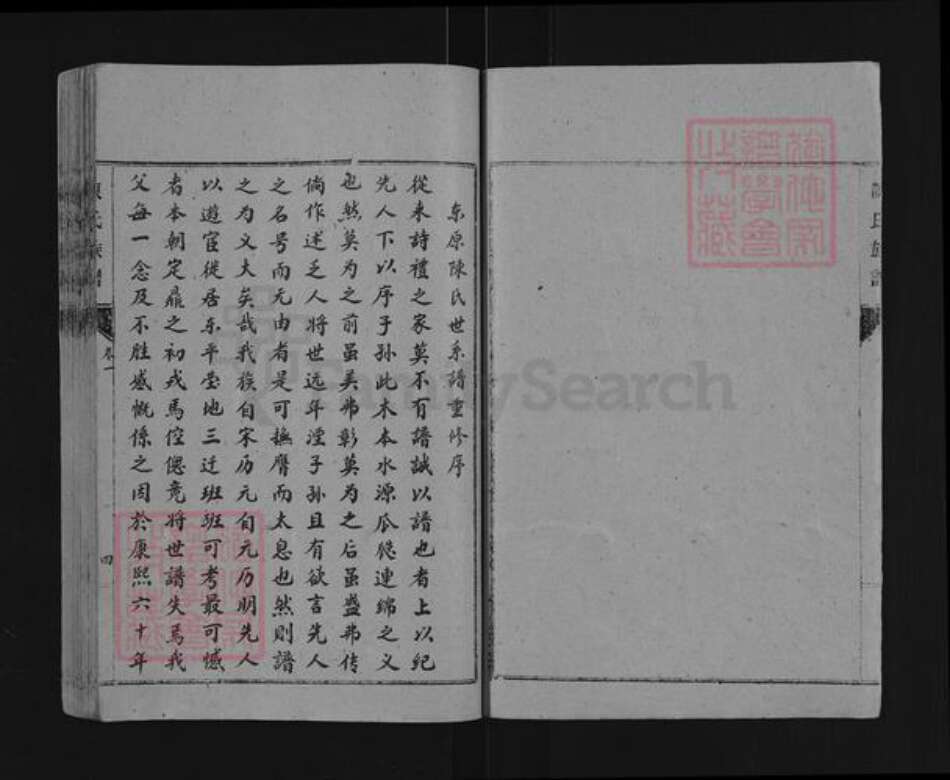 东原陳氏世系譜重修序
從来詩禮之家莫不有譜誠以譜也者上以紀
先人下以序子孙此木本水源瓜瓞連绵之义
也然莫为之前虽美弗彰莫为之后虽盛弗传
倘作述乏人將世远年湮子孙且有欲言先人
之名号而无由者是可撫膺而太息也然則譜
之为义大矣哉我族自宋历元自元历明先人
以遊宦徙居东平茔地三迁班班可考最可憾
者本朝定鼎之初戎馬倥偬竟將世譜失焉我
父每一念及不胜感慨係之因於康熙六十年
卷一
四
陳氏族譜
FamilySearch